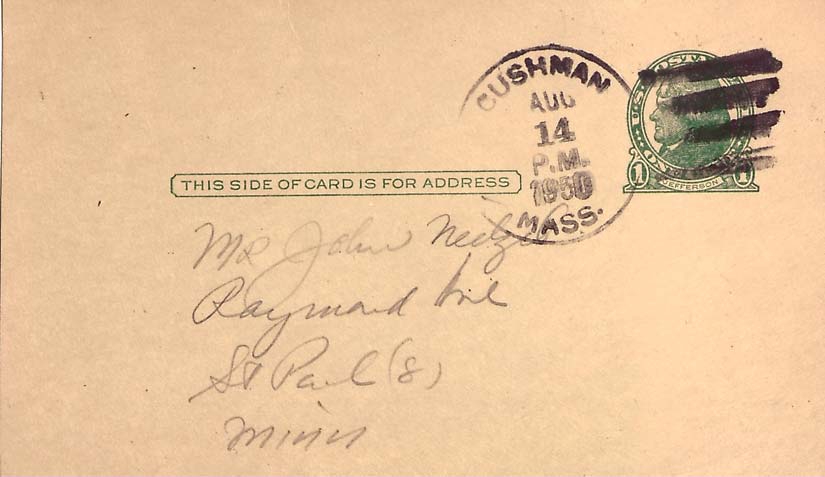 CUSHMAN
AUG
14
P.M.
1950
MASS.
U.S. POSTAGE
1 1
JEFFERSON
THIS SIDE OF CARD IS FOR ADDRESS
Mr John
Raymond Ave
St Paul (8)
Minn